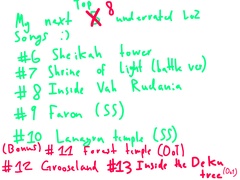 Top 8
My next underrated LoZ
Songs :)
#6 Sheikah tower
#7 Shrine of light (battle ver)
#8 Inside Vah Rudania
#9 Faron (SS)
#10 Lanayru temple (SS)
(Bonus) #11 Forest temple (OoT)
#12 Grooseland #13 Inside the Deku
tree (OoT)